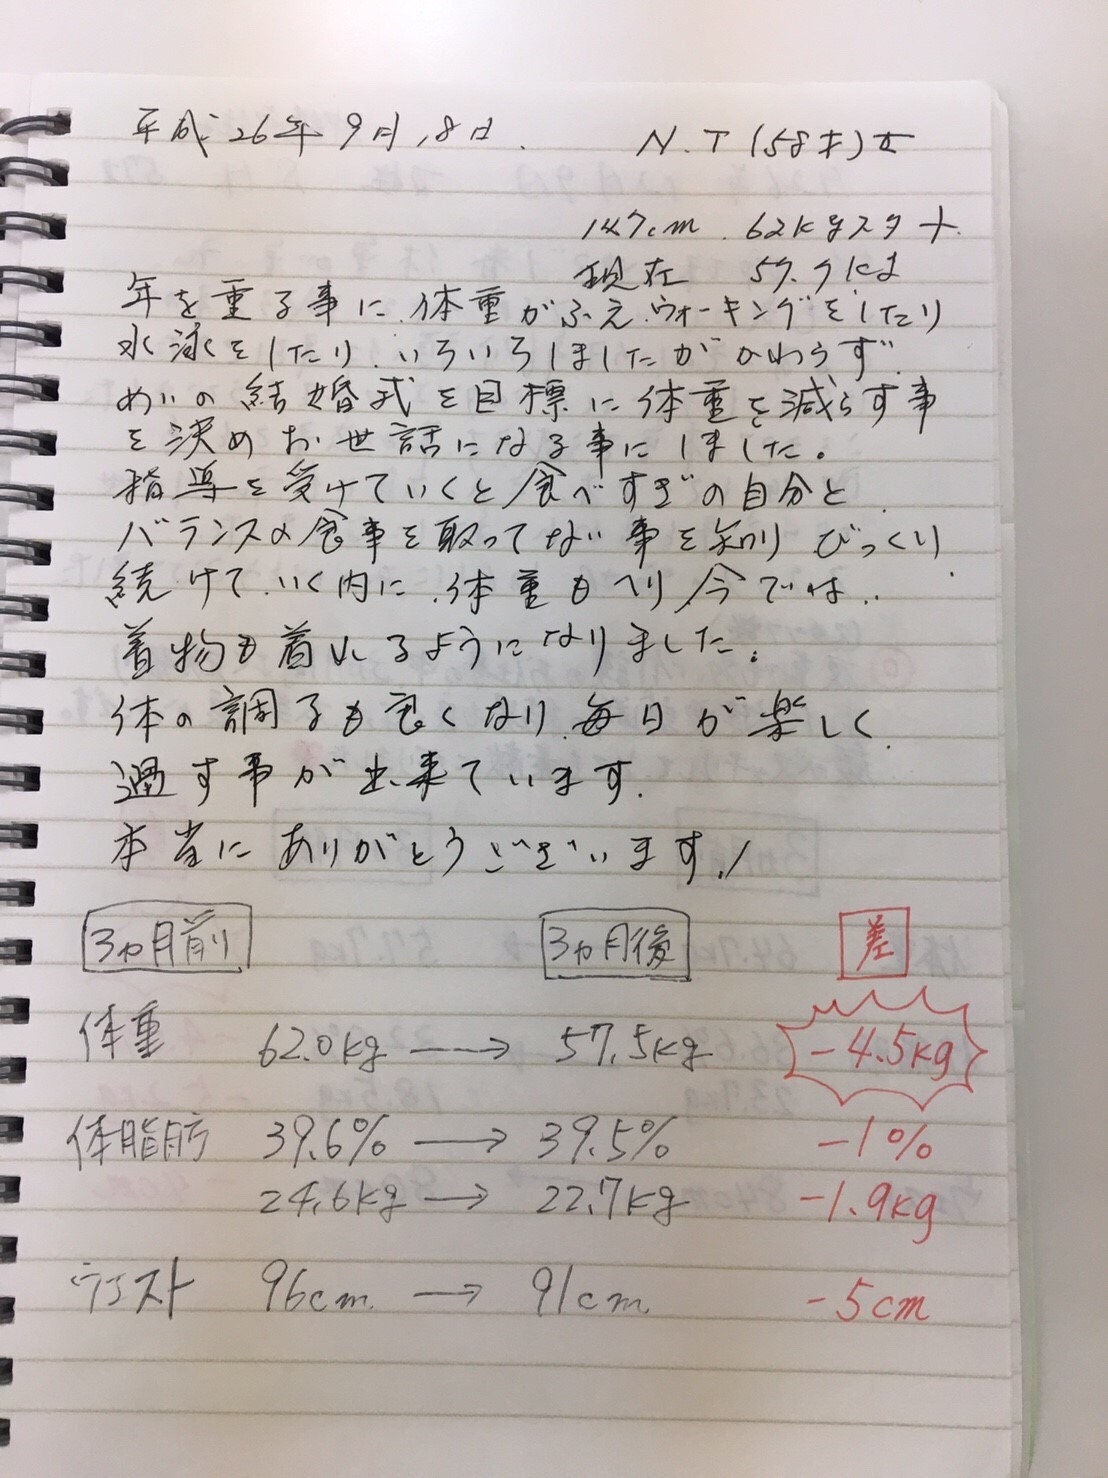 平成26年9月18日. N.T(58才)女
147cm. 62kgスタート.
現在 57.7kg
年を重る事に.体重がふえ.ウォーキングをしたり
水泳をしたり.いろいろしましたがかわらず.
めいの結婚式を目標に体重を減らす事
を決めお世話になる事にしました。
指導を受けていくと食べすぎの自分と.
バランスの食事を取ってない事を知りびっくり
続けて.いく内に.体重もへり今では..
着物も着れるようになりました.
体の調子も良くなり.毎日が楽しく
過す事が出来ています.
本当にありがとうございます!
3ヵ月前 3ヵ月後 差
体重 62.0kg → 57.5kg -4.5kg
体脂肪 39.6% → 39.5% -1%
24.6kg → 22.7kg -1.9kg
ウエスト 96cm. → 91cm. -5cm